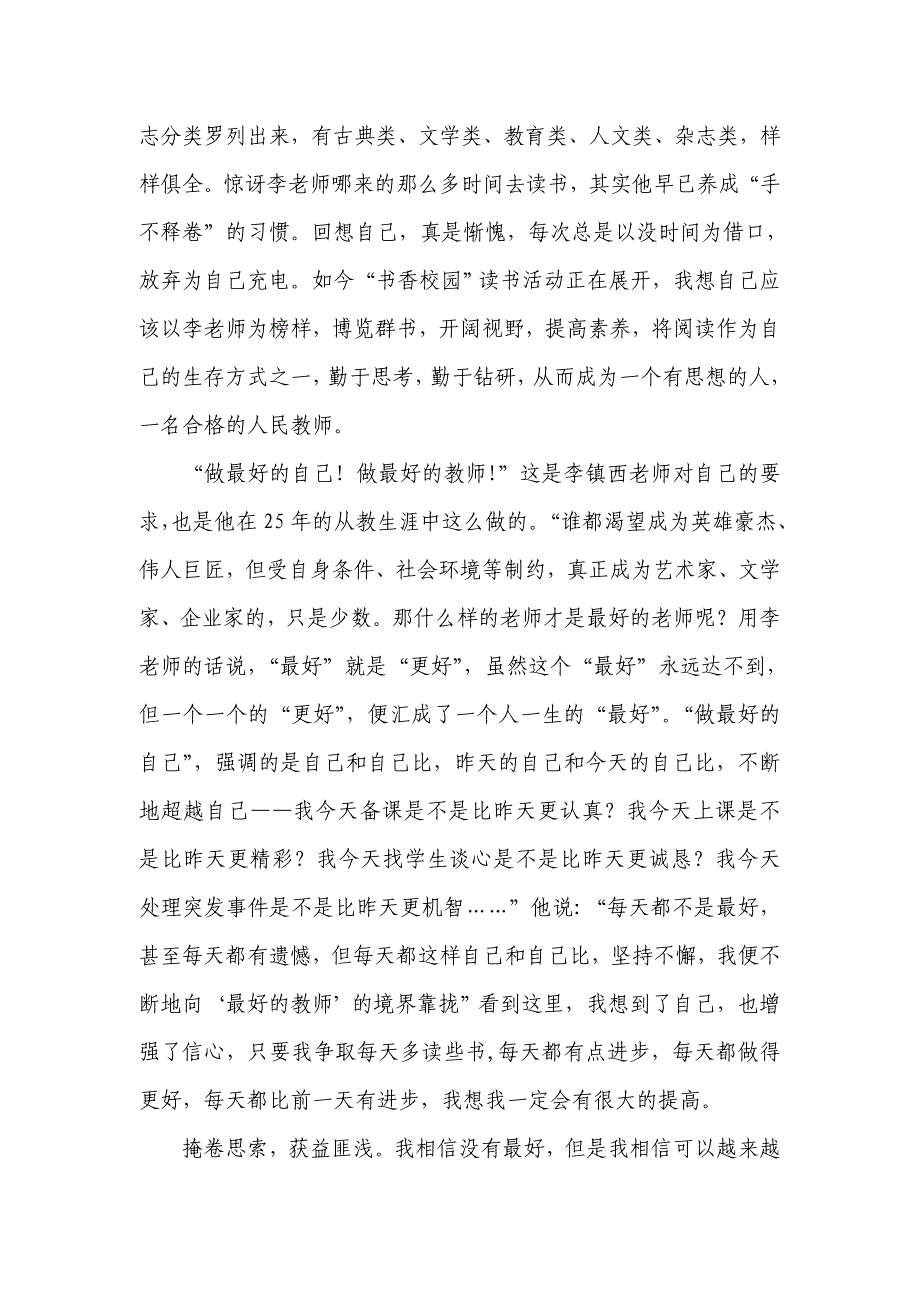 志分类罗列出来，有古典类、文学类、教育类、人文类、杂志类，样
样俱全。惊讶李老师哪来的那么多时间去读书，其实他早已养成“手
不释卷”的习惯。回想自己，真是惭愧，每次总是以没时间为借口，
放弃为自己充电。如今“书香校园”读书活动正在展开，我想自己应
该以李老师为榜样，博览群书，开阔视野，提高素养，将阅读作为自
己的生存方式之一，勤于思考，勤于钻研，从而成为一个有思想的人，
一名合格的人民教师。
“做最好的自己！做最好的教师！”这是李镇西老师对自己的要
求，也是他在 25 年的从教生涯中这么做的。“谁都渴望成为英雄豪杰、
伟人巨匠，但受自身条件、社会环境等制约，真正成为艺术家、文学
家、企业家的，只是少数。那什么样的老师才是最好的老师呢？用李
老师的话说，“最好”就是“更好”，虽然这个“最好”永远达不到，
但一个一个的“更好”，便汇成了一个人一生的“最好”。“做最好的
自己”，强调的是自己和自己比，昨天的自己和今天的自己比，不断
地超越自己——我今天备课是不是比昨天更认真？我今天上课是不
是比昨天更精彩？我今天找学生谈心是不是比昨天更诚恳？我今天
处理突发事件是不是比昨天更机智……”他说：“每天都不是最好，
甚至每天都有遗憾，但每天都这样自己和自己比，坚持不懈，我便不
断地向‘最好的教师’的境界靠拢”看到这里，我想到了自己，也增
强了信心，只要我争取每天多读些书,每天都有点进步，每天都做得
更好，每天都比前一天有进步，我想我一定会有很大的提高。
掩卷思索，获益匪浅。我相信没有最好，但是我相信可以越来越